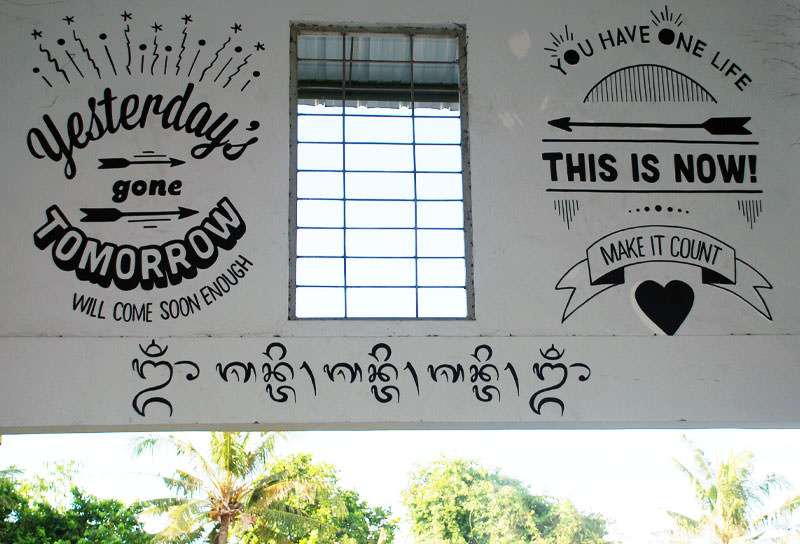 Yesterday's
gone
TOMORROW
WILL COME SOON ENOUGH
YOU HAVE ONE LIFE
THIS IS NOW!
MAKE IT COUNT
ᬒᬁ ᬰᬵᬦ᭄ᬢᬶ᭞ ᬰᬵᬦ᭄ᬢᬶ᭞ ᬰᬵᬦ᭄ᬢᬶ᭞ ᬒᬁ